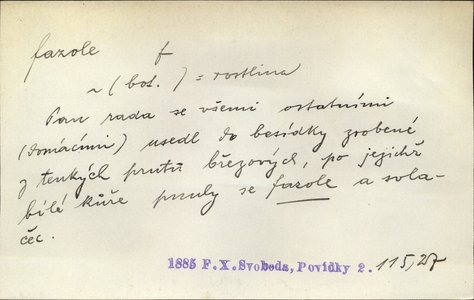 fazole f
~ (bot.) = rostlina
Pan rada se všemi ostatními
(domácími) usedl do besídky zrobené
z tenkých prutů březových, po jejichž
bílé kůře pnuly se fazole a svla-
čec.
1885 F.X.Svoboda, Povídky 2. 115,27